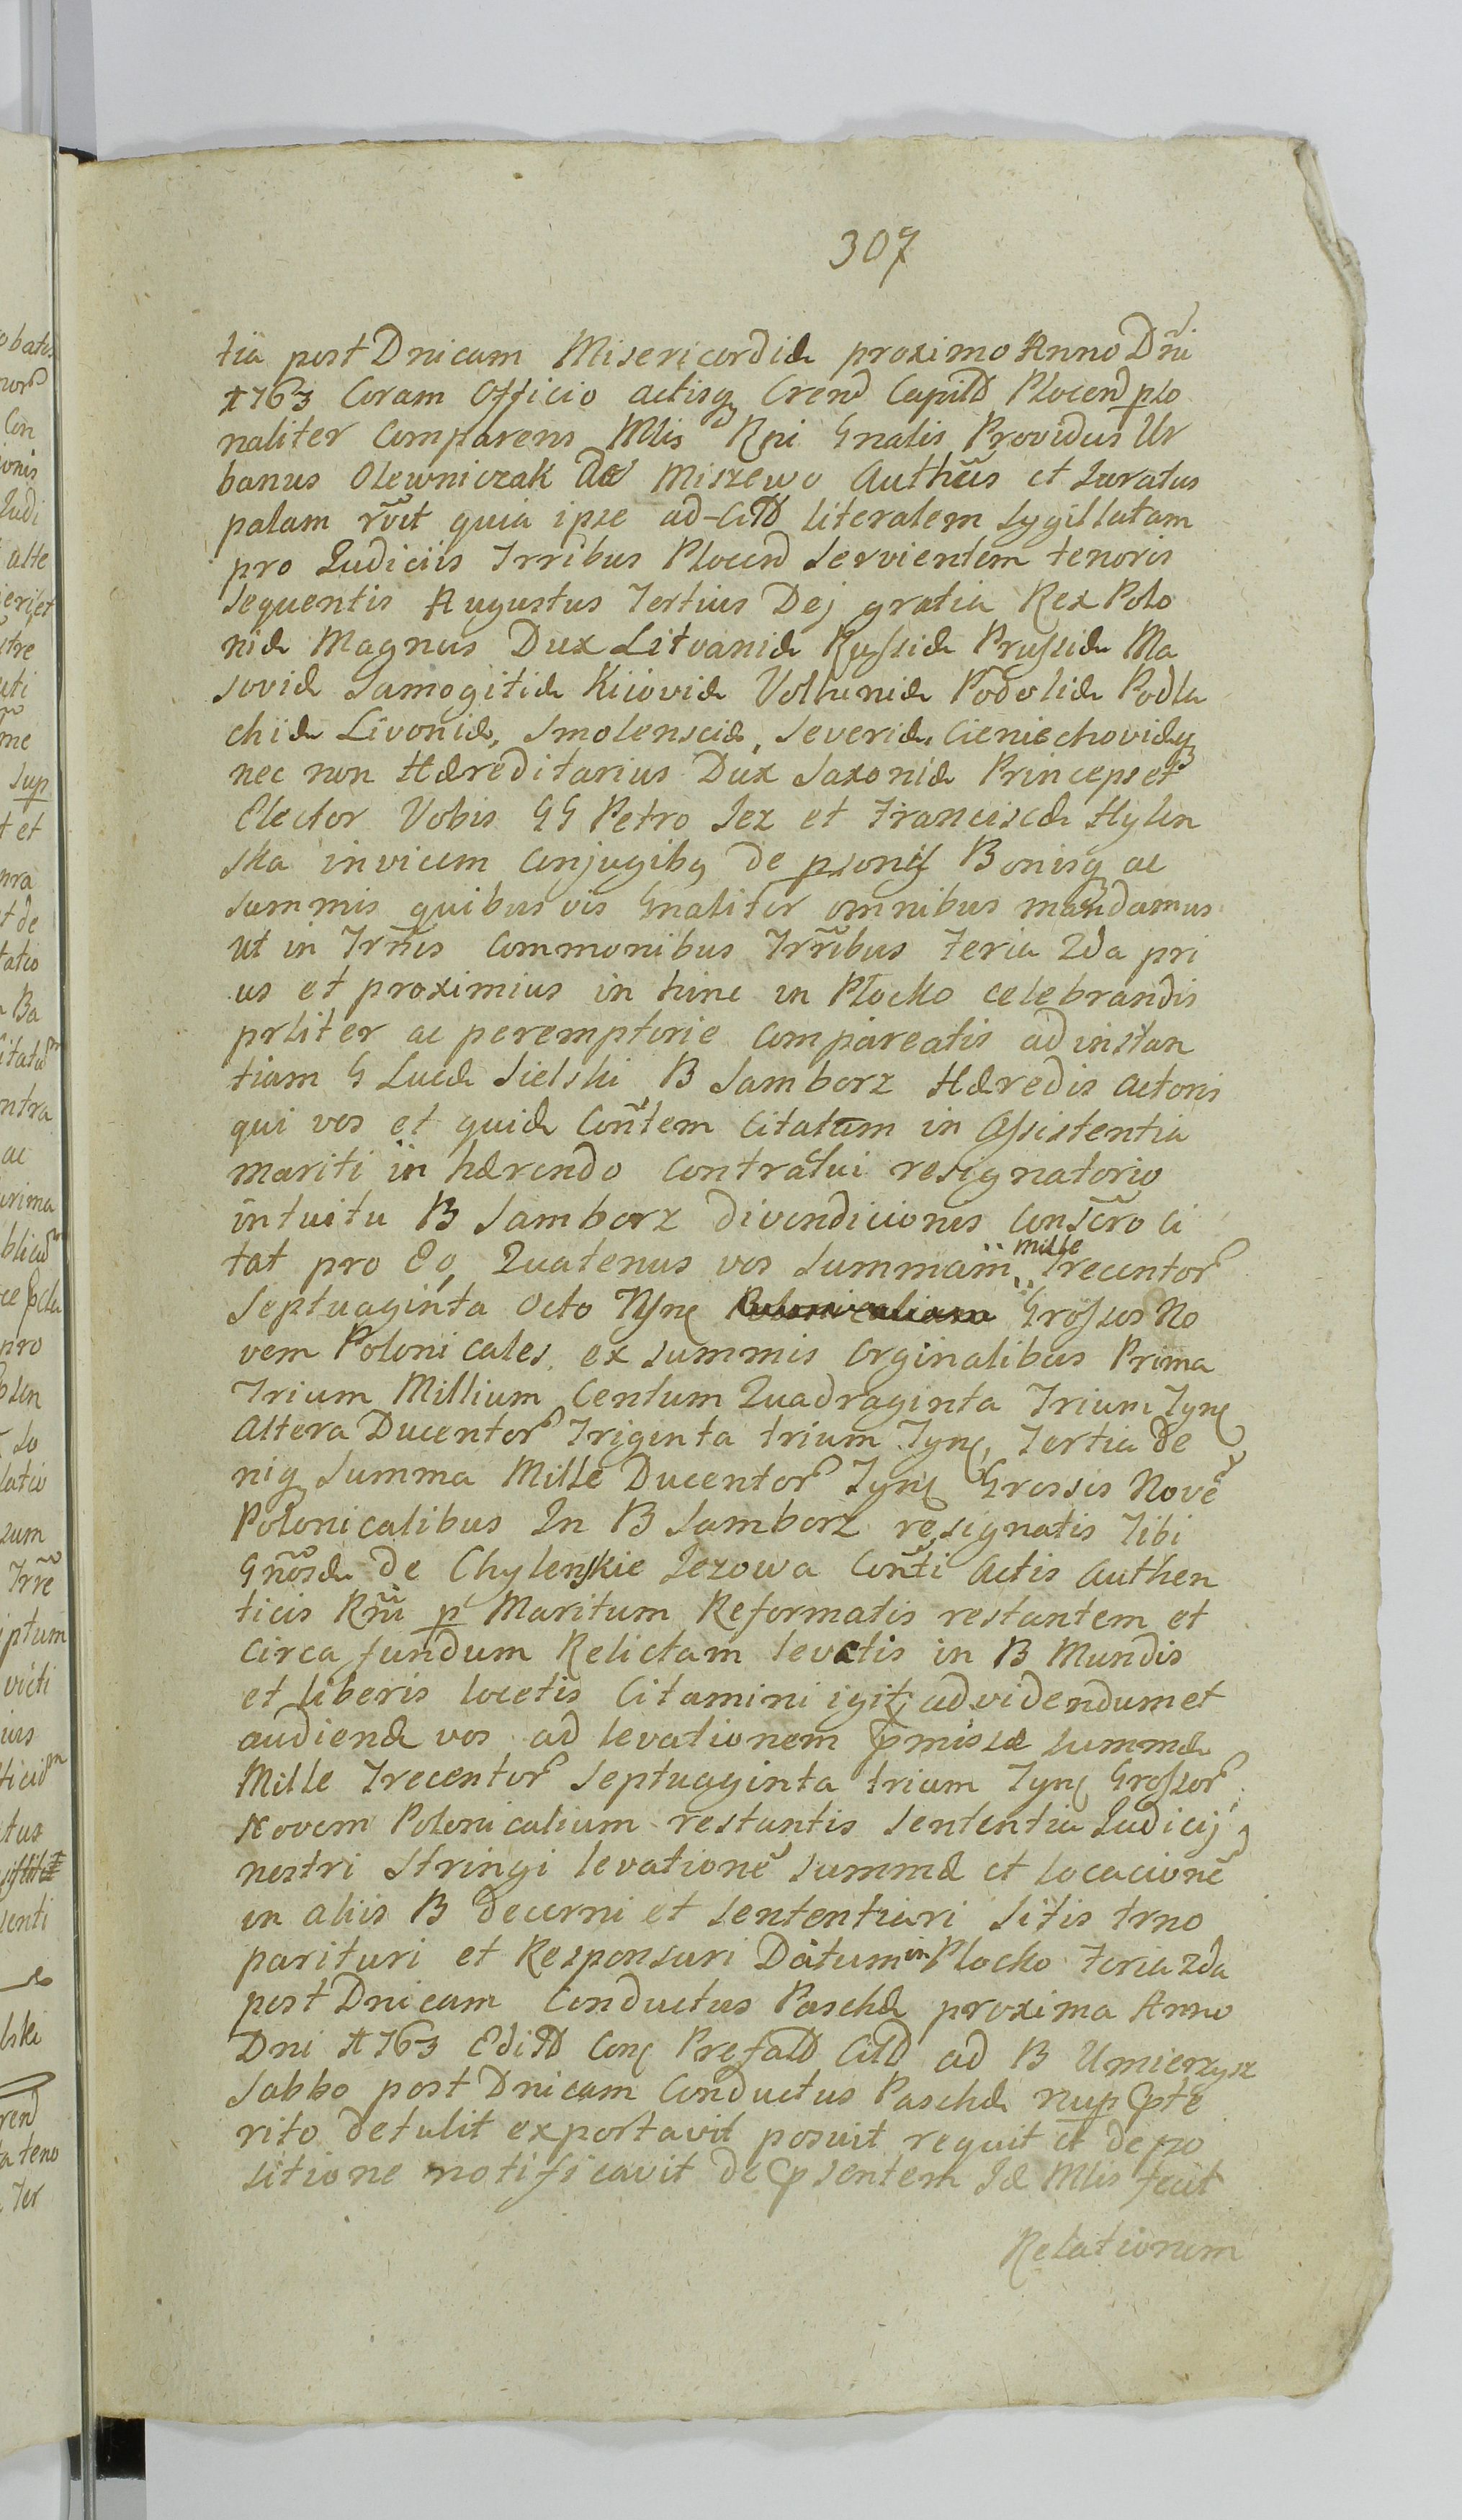 307
tia post Dnicam Misericordiæ proximo Anno Dni
1763 Coram Officio actisq Crend Capitd Plocend pso
naliter Comparens Mlis Rni Gnalis Providus Ur
banus Olewniczak de Miszewo Authcus et Juratus
palam rvit quia ipse ad Citd literalem Sygillatam
pro Judiciis Trribus Plocend Servientem tenoris
Sequentis Augustus Tertius Dej gratia Rex Polo
niæ Magnus Dux Litvaniæ Russiæ Prussiæ Ma
soviæ Samogitiæ Kiioviæ Volhuniæ Podoliæ Podla
chiæ Livoniæ, Smolensciæ, Severiæ, Cieniechoviæq
nec non Hæreditarius Dux Saxoniæ Princeps et
Elector Vobis GG Petro Jez et Franciscæ Hylin
ska invicem Conjugibq de psonis Bonisq ac
Summis quibusvis Gnaliter omnibus mandamus
ut in Trnis Commonibus Trribus feria 2da pri
us et proximius in hinc in Płocko celebrandis
prliter ac peremptorie Compareatis ad instan
tiam G Lucæ Sielski B Samborz Hæredis actoris
qui vos et quidæ Contem Citatum in Assistentia
mariti in hærendo Contractui resignatorio
intuitu B Samborz divendiciones Conscro Ci
tat pro Eo, Quatenus vos Summam Mille Trecentor
Septuaginta Octo Tynę Grossos No
vem Polonicales ex Summis Orginalibus Prima
Trium Millium Centum Quadraginta Trium Tynę
Altera Ducentor Triginta trium Tynę, Tertia de
niq Summa Mille Ducentor Tynę Grossis Nove
Polonicalibus In B Samborz resignatis Tibi
Gnosæ de Chylenskie Jezowa Conti Actis Authen
ticis Rni p Maritum Reformatis restantem et
Circa fundum Relictam levetis in B Mundis
et liberis locetis Citamini igitr ad videndum et
audiend vos ad levationem pmissæ Summæ
Mille Trecentor Septuaginta trium Tynę Grossor
Novem Polonicalium restantis Sententia Judicij
nostri Stringi levatione Summæ et locacione
in aliis B decerni et Sententiari Sitis trno
parituri et Responsuri Datum in Plocko feria 2da
post Dnicam Conductus Paschæ proxima Anno
Dni 1763 Editd Conę Prefatd Citd ad B Umierzysz
Sabbo post Dnicam Conductus Paschæ nup pte
rito detulit exportavit posuit requit et de po
sitione notificavit de psentem Jd Mlis fecit
Relationem